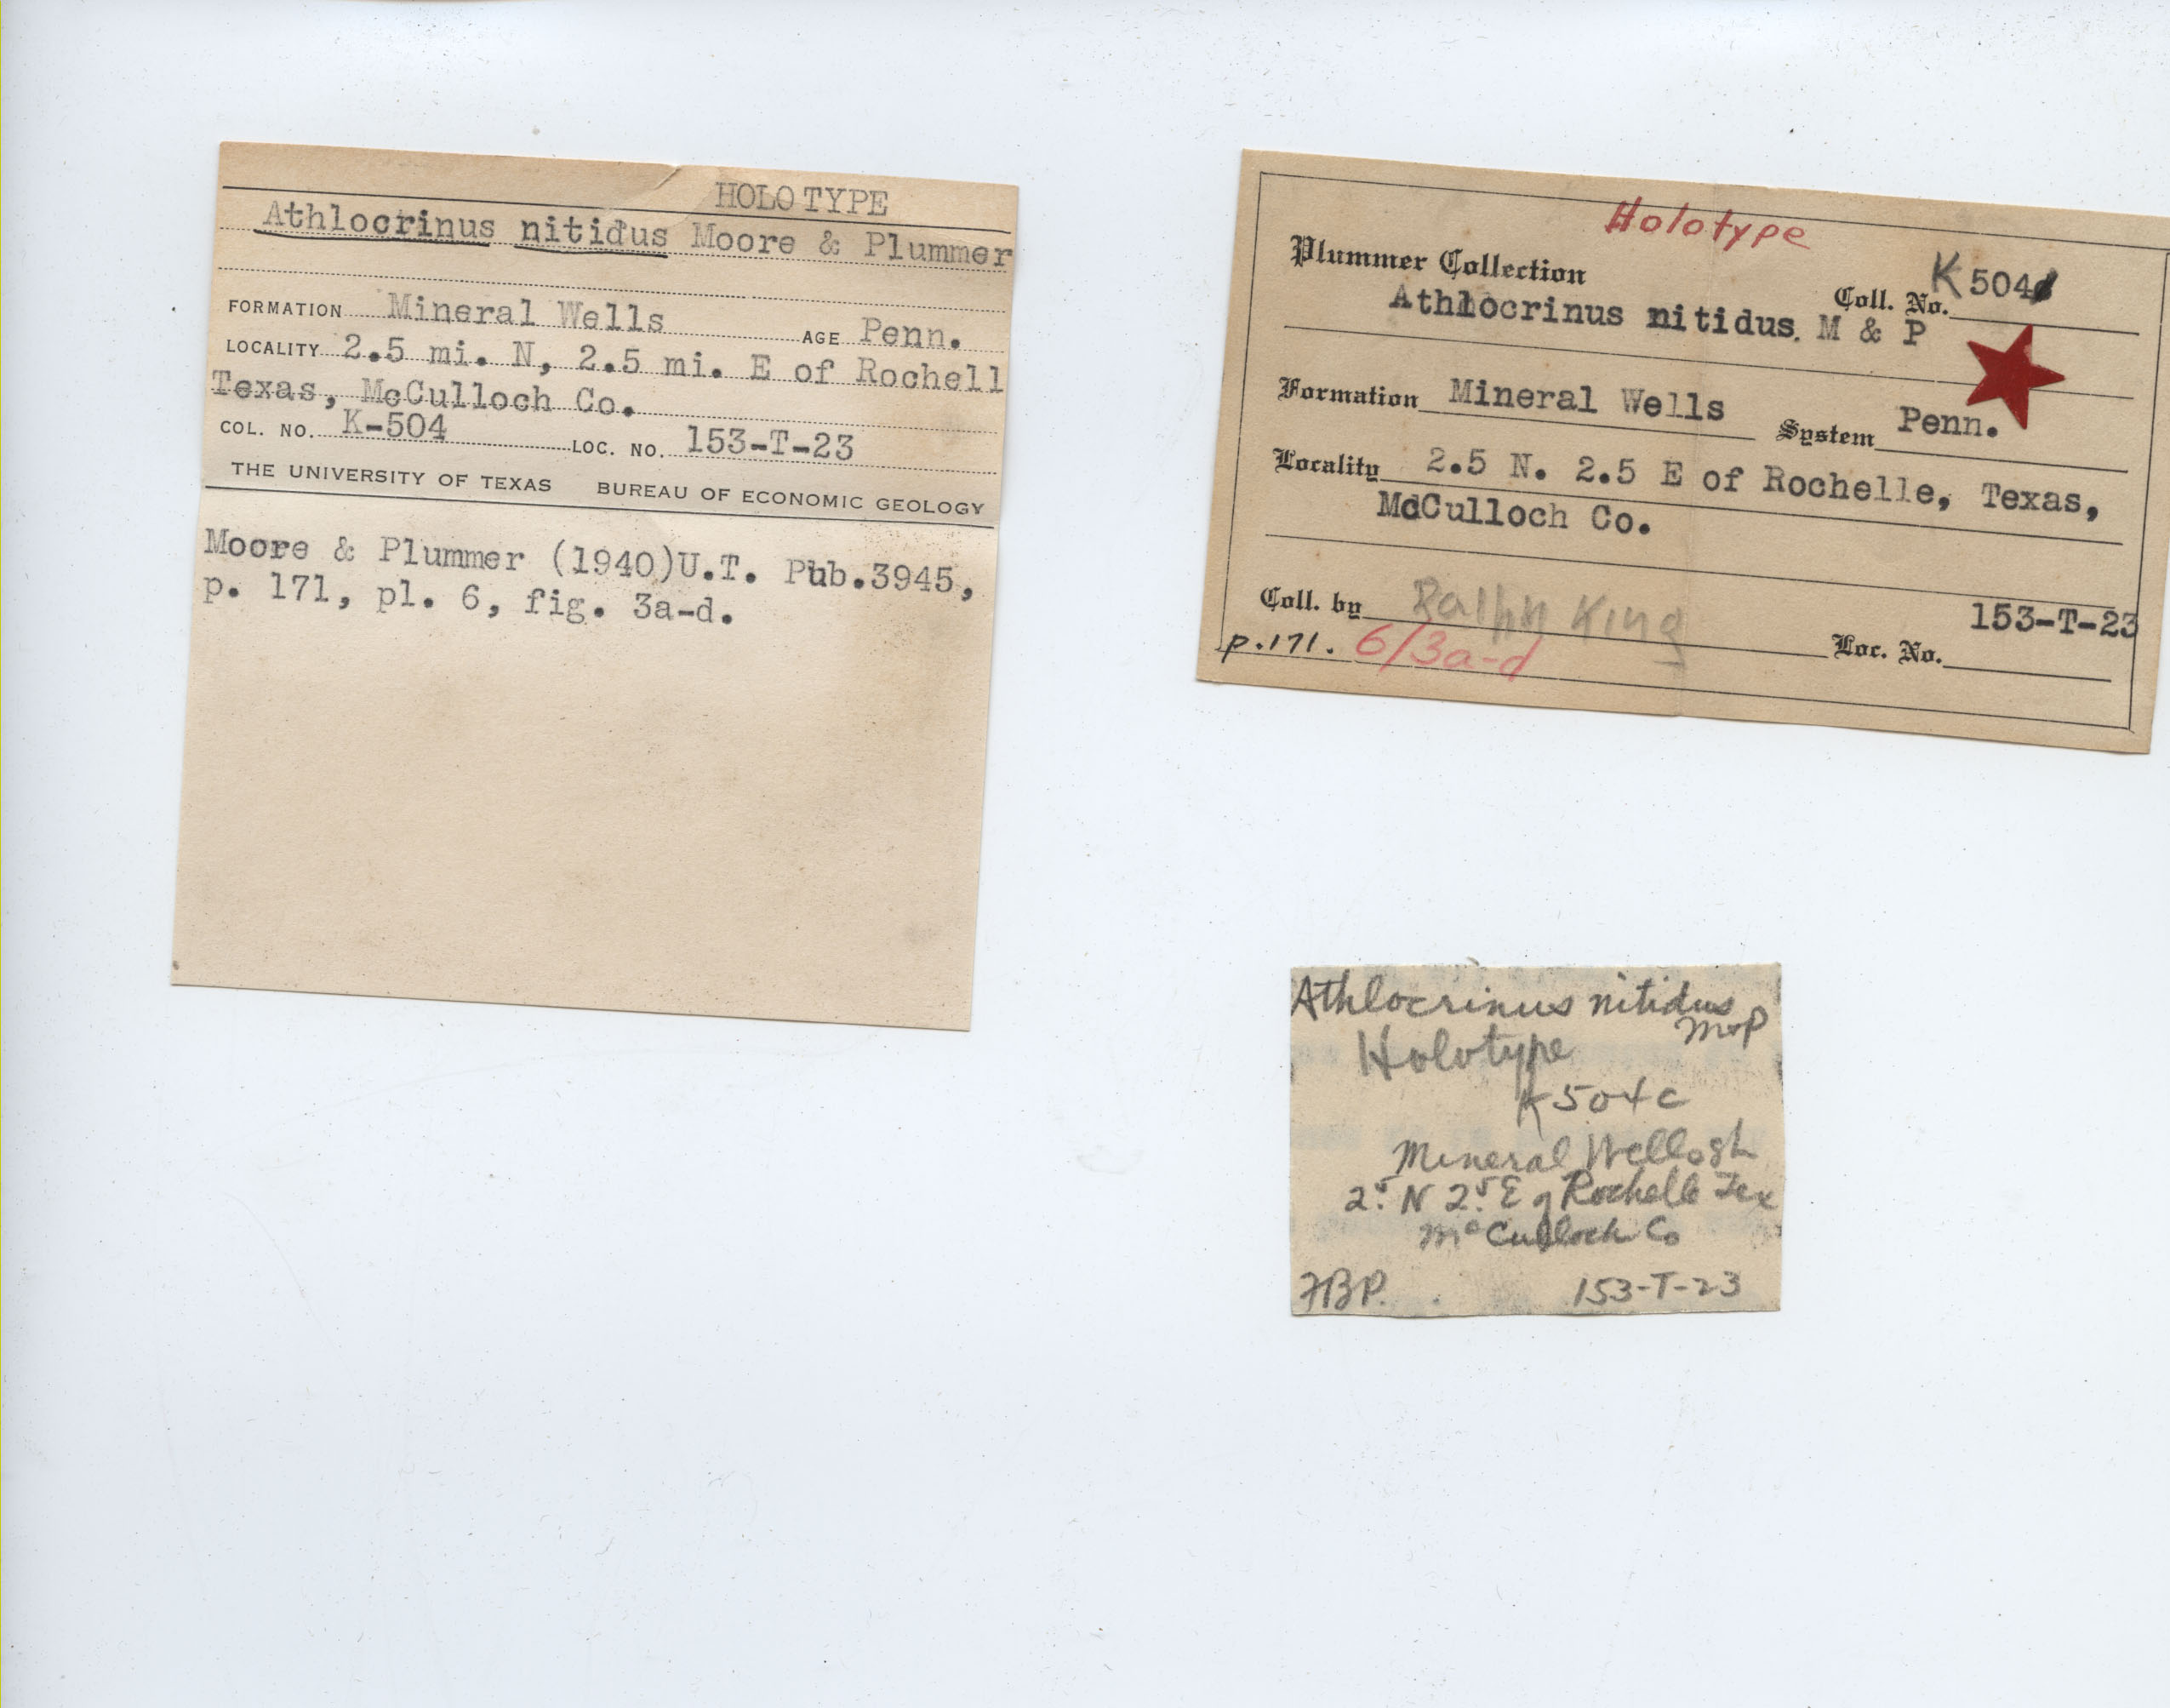 HOLOTYPE
Athlocrinus nitidus Moore & Plummer
FORMATION Mineral Wells AGE Penn.
LOCALITY 2.5 mi. N, 2.5 mi. E of Rochell
Texas, McCulloch Co.
COL. NO. K-504 LOC. NO. 153-T-23
THE UNIVERSITY OF TEXAS BUREAU OF ECONOMIC GEOLOGY
Moore & Plummer (1940)U.T. Pub.3945,
p. 171, pl. 6, fig. 3a-d.
Holotype
Plummer Collection Coll. No. K 504
Athlocrinus nitidus. M & P
Formation Mineral Wells System Penn.
Locality 2.5 N. 2.5 E of Rochelle, Texas,
McCulloch Co.
Coll. by Ralph King
p.171. 6/3a-d Loc. No. 153-T-23
Athlocrinus nitidus
M+P
Holotype
K504c
Mineral Wells sh
2.5 N 2.5 E of Rochelle Tex
McCulloch Co
FBP. 153-T-23